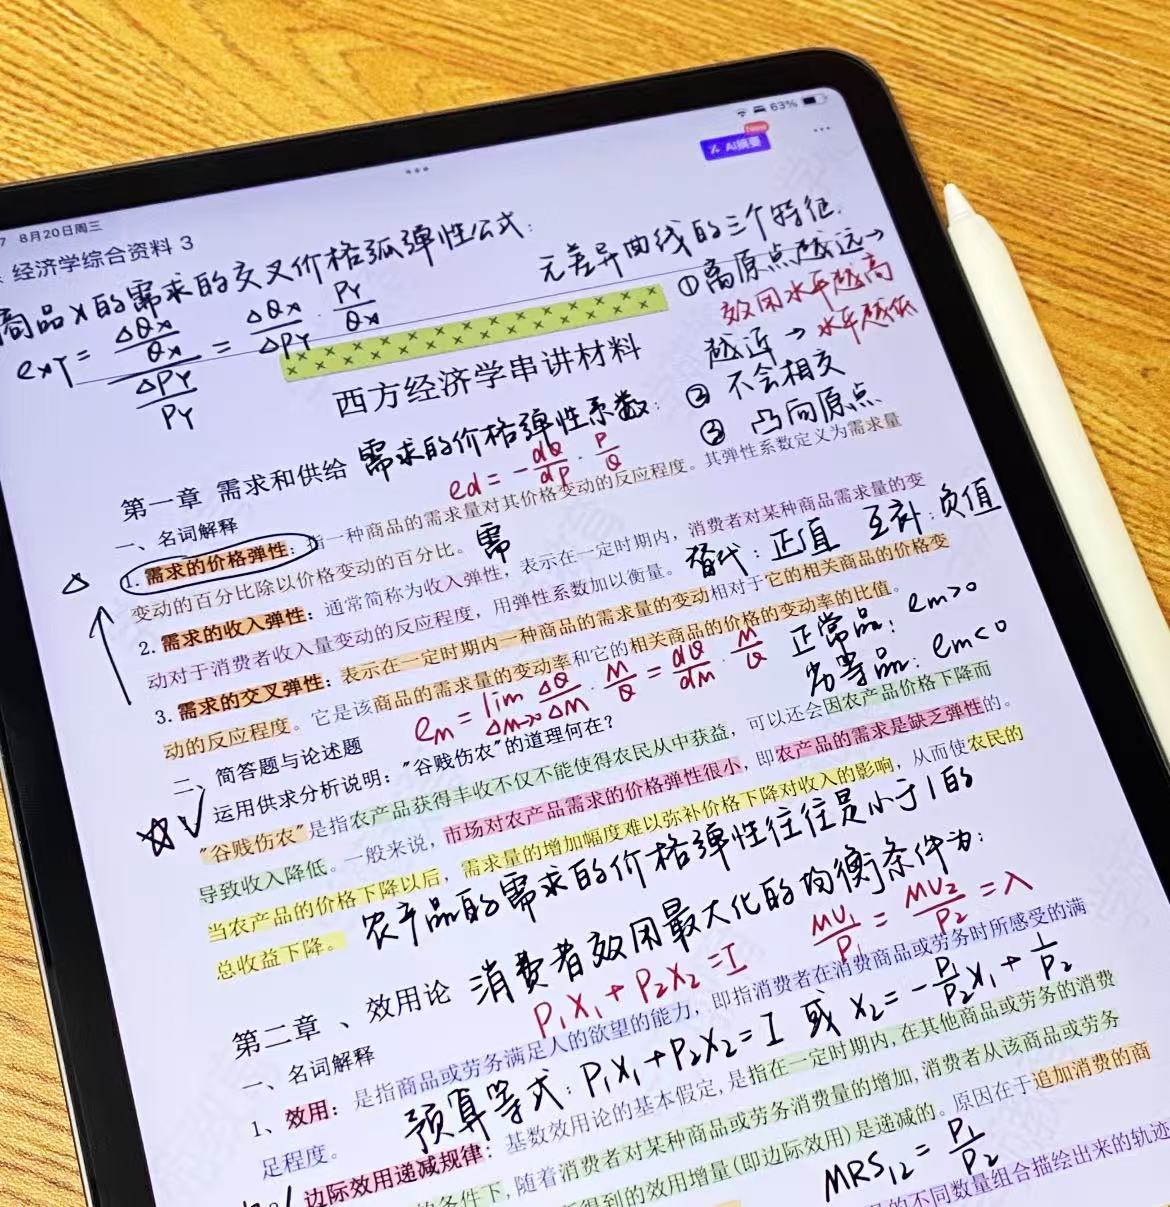 63%
8月20日周三
New
AI摘要
经济学综合资料 3
商品X的需求的交叉价格弧弹性公式:
eXY = ΔQX/QX / ΔPY/PY = ΔQX/ΔPY · PY/QX
无差异曲线的三个特征.
①离原点越远→
效用水平越高
越近→水平越低
② 不会相交
③ 凸向原点
西方经济学串讲材料
第一章 需求和供给
需求的价格弹性系数:
ed = - dQ/dP · P/Q
一、名词解释
1. 需求的价格弹性：指一种商品的需求量对其价格变动的反应程度。其弹性系数定义为需求量
变动的百分比除以价格变动的百分比。
需
2. 需求的收入弹性：通常简称为收入弹性，表示在一定时期内，消费者对某种商品需求量的变
动对于消费者收入量变动的反应程度，用弹性系数加以衡量。
替代：正值 互补：负值
3. 需求的交叉弹性：表示在一定时期内一种商品的需求量的变动相对于它的相关商品的价格变
动的反应程度。它是该商品的需求量的变动率和它的相关商品的价格的变动率的比值。
em = lim ΔM→0 ΔQ/ΔM · M/Q = dQ/dM · M/Q
正常品：em>0
劣等品：em<0
二、简答题与论述题
运用供求分析说明："谷贱伤农"的道理何在？
"谷贱伤农"是指农产品获得丰收不仅不能使得农民从中获益，可以还会因农产品价格下降而
导致收入降低。一般来说，市场对农产品需求的价格弹性很小，即农产品的需求是缺乏弹性的。
当农产品的价格下降以后，需求量的增加幅度难以弥补价格下降对收入的影响，从而使农民的
总收益下降。
农产品的需求的价格弹性往往是小于1的
第二章 、效用论
消费者效用最大化的均衡条件为:
P1X1+P2X2=I
MU1/P1 = MU2/P2 = λ
一、名词解释
1、效用：是指商品或劳务满足人的欲望的能力，即指消费者在消费商品或劳务时所感受的满
足程度。
预算等式：P1X1+P2X2=I 或 X2=-P1/P2X1+1/P2
边际效用递减规律：基数效用论的基本假定，是指在一定时期内，在其他商品或劳务的消费
的条件下，随着消费者对某种商品或劳务消费量的增加，消费者从该商品或劳务
得到的效用增量(即边际效用)是递减的。原因在于追加消费的商
MRS12 = P1/P2
的不同数量组合描绘出来的轨迹